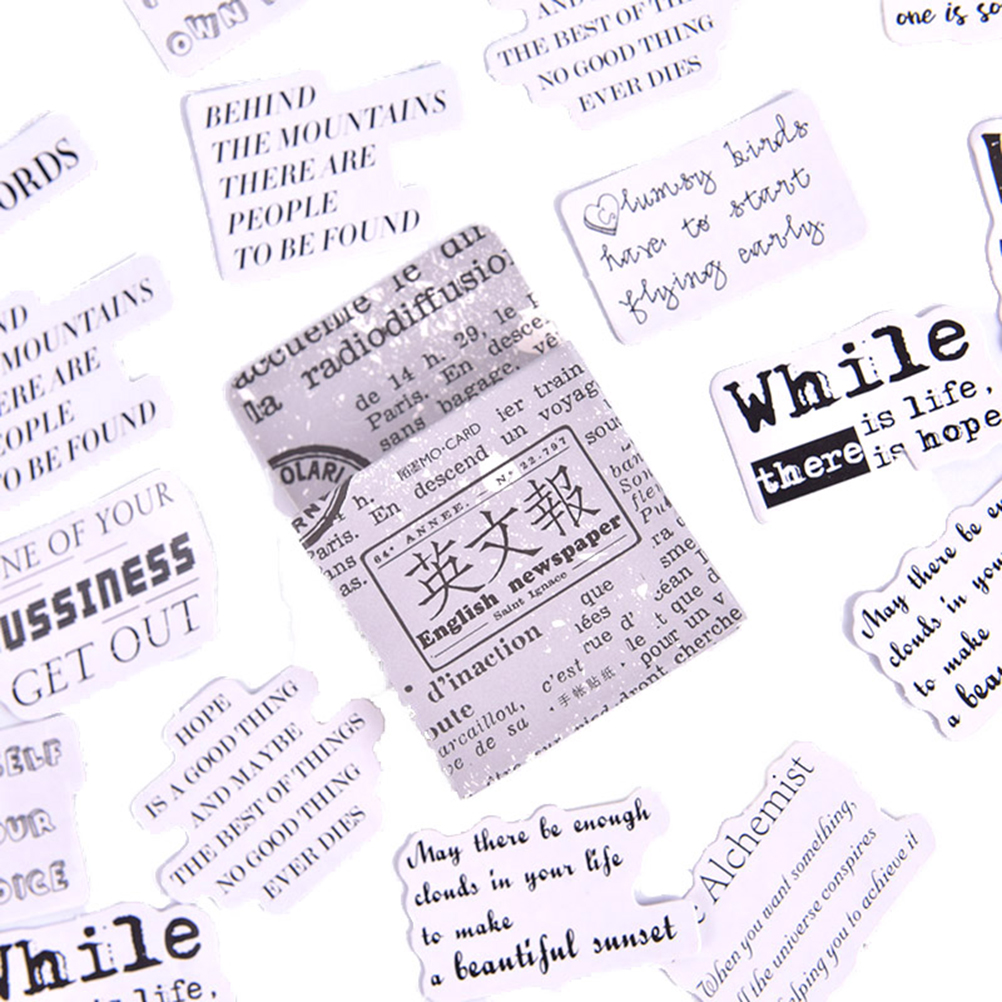 OWN
AND
THE BEST OF TH
NO GOOD THING
EVER DIES
one is so
BEHIND
THE MOUNTAINS
THERE ARE
PEOPLE
TO BE FOUND
ORDS
Clumsy birds
have to start
flying early.
While
is life,
there is hope
ND
MOUNTAINS
ERE ARE
EOPLE
O BE FOUND
accueille le
la radiodiffusio
de 14 h. 29, le
Paris. En desce
sans bagage.
OLARI
陌墨MO·CARD
ier train
un voyag
h. descend
En
64e ANNEE. No 22.797
英文報
English newspaper
Saint Ignace
Paris.
ans
as.
sou
ban
Son
fle
Pu
ra
sme
que
iées
rue d'
c'est
le t que d
pour un v
cherche
· d'inaction
oute
arcaillou,
de sa
·手帐贴纸·
NE OF YOUR
USSINESS
GET OUT
May there be en
clouds in you
to make
a beau
HOPE
IS A GOOD THING
AND MAYBE
THE BEST OF THINGS
NO GOOD THING
EVER DIES
ELF
OUR
OICE
While
is life,
May there be enough
clouds in your life
to make
a beautiful sunset
Alchemist
When you want something,
ll the universe conspires
elping you to achieve it